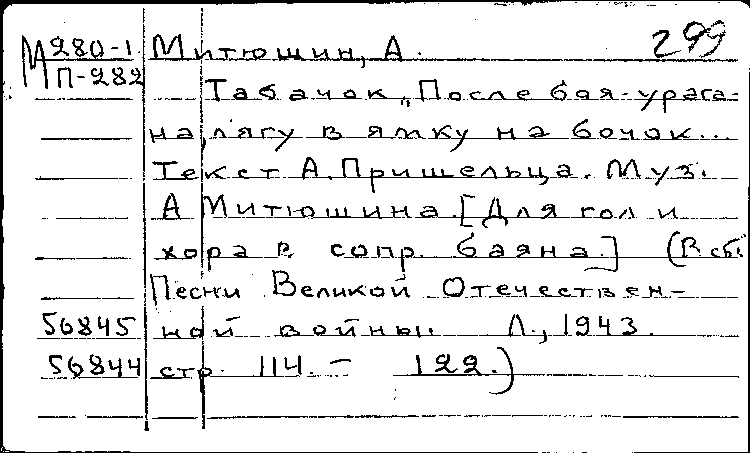 М 280-1 Митюшин, А. 299
П-282
Табачок „После боя-урага-
на, лягу в ямку на бочок...
Текст А. Пришельца. Муз.
А Митюшина. [Для гол и
хора в сопр. баяна.] (В сб.
Песни Великой Отечествен-
56845 ной войны. Л., 1943.
56844 стр. 114. - 122.)